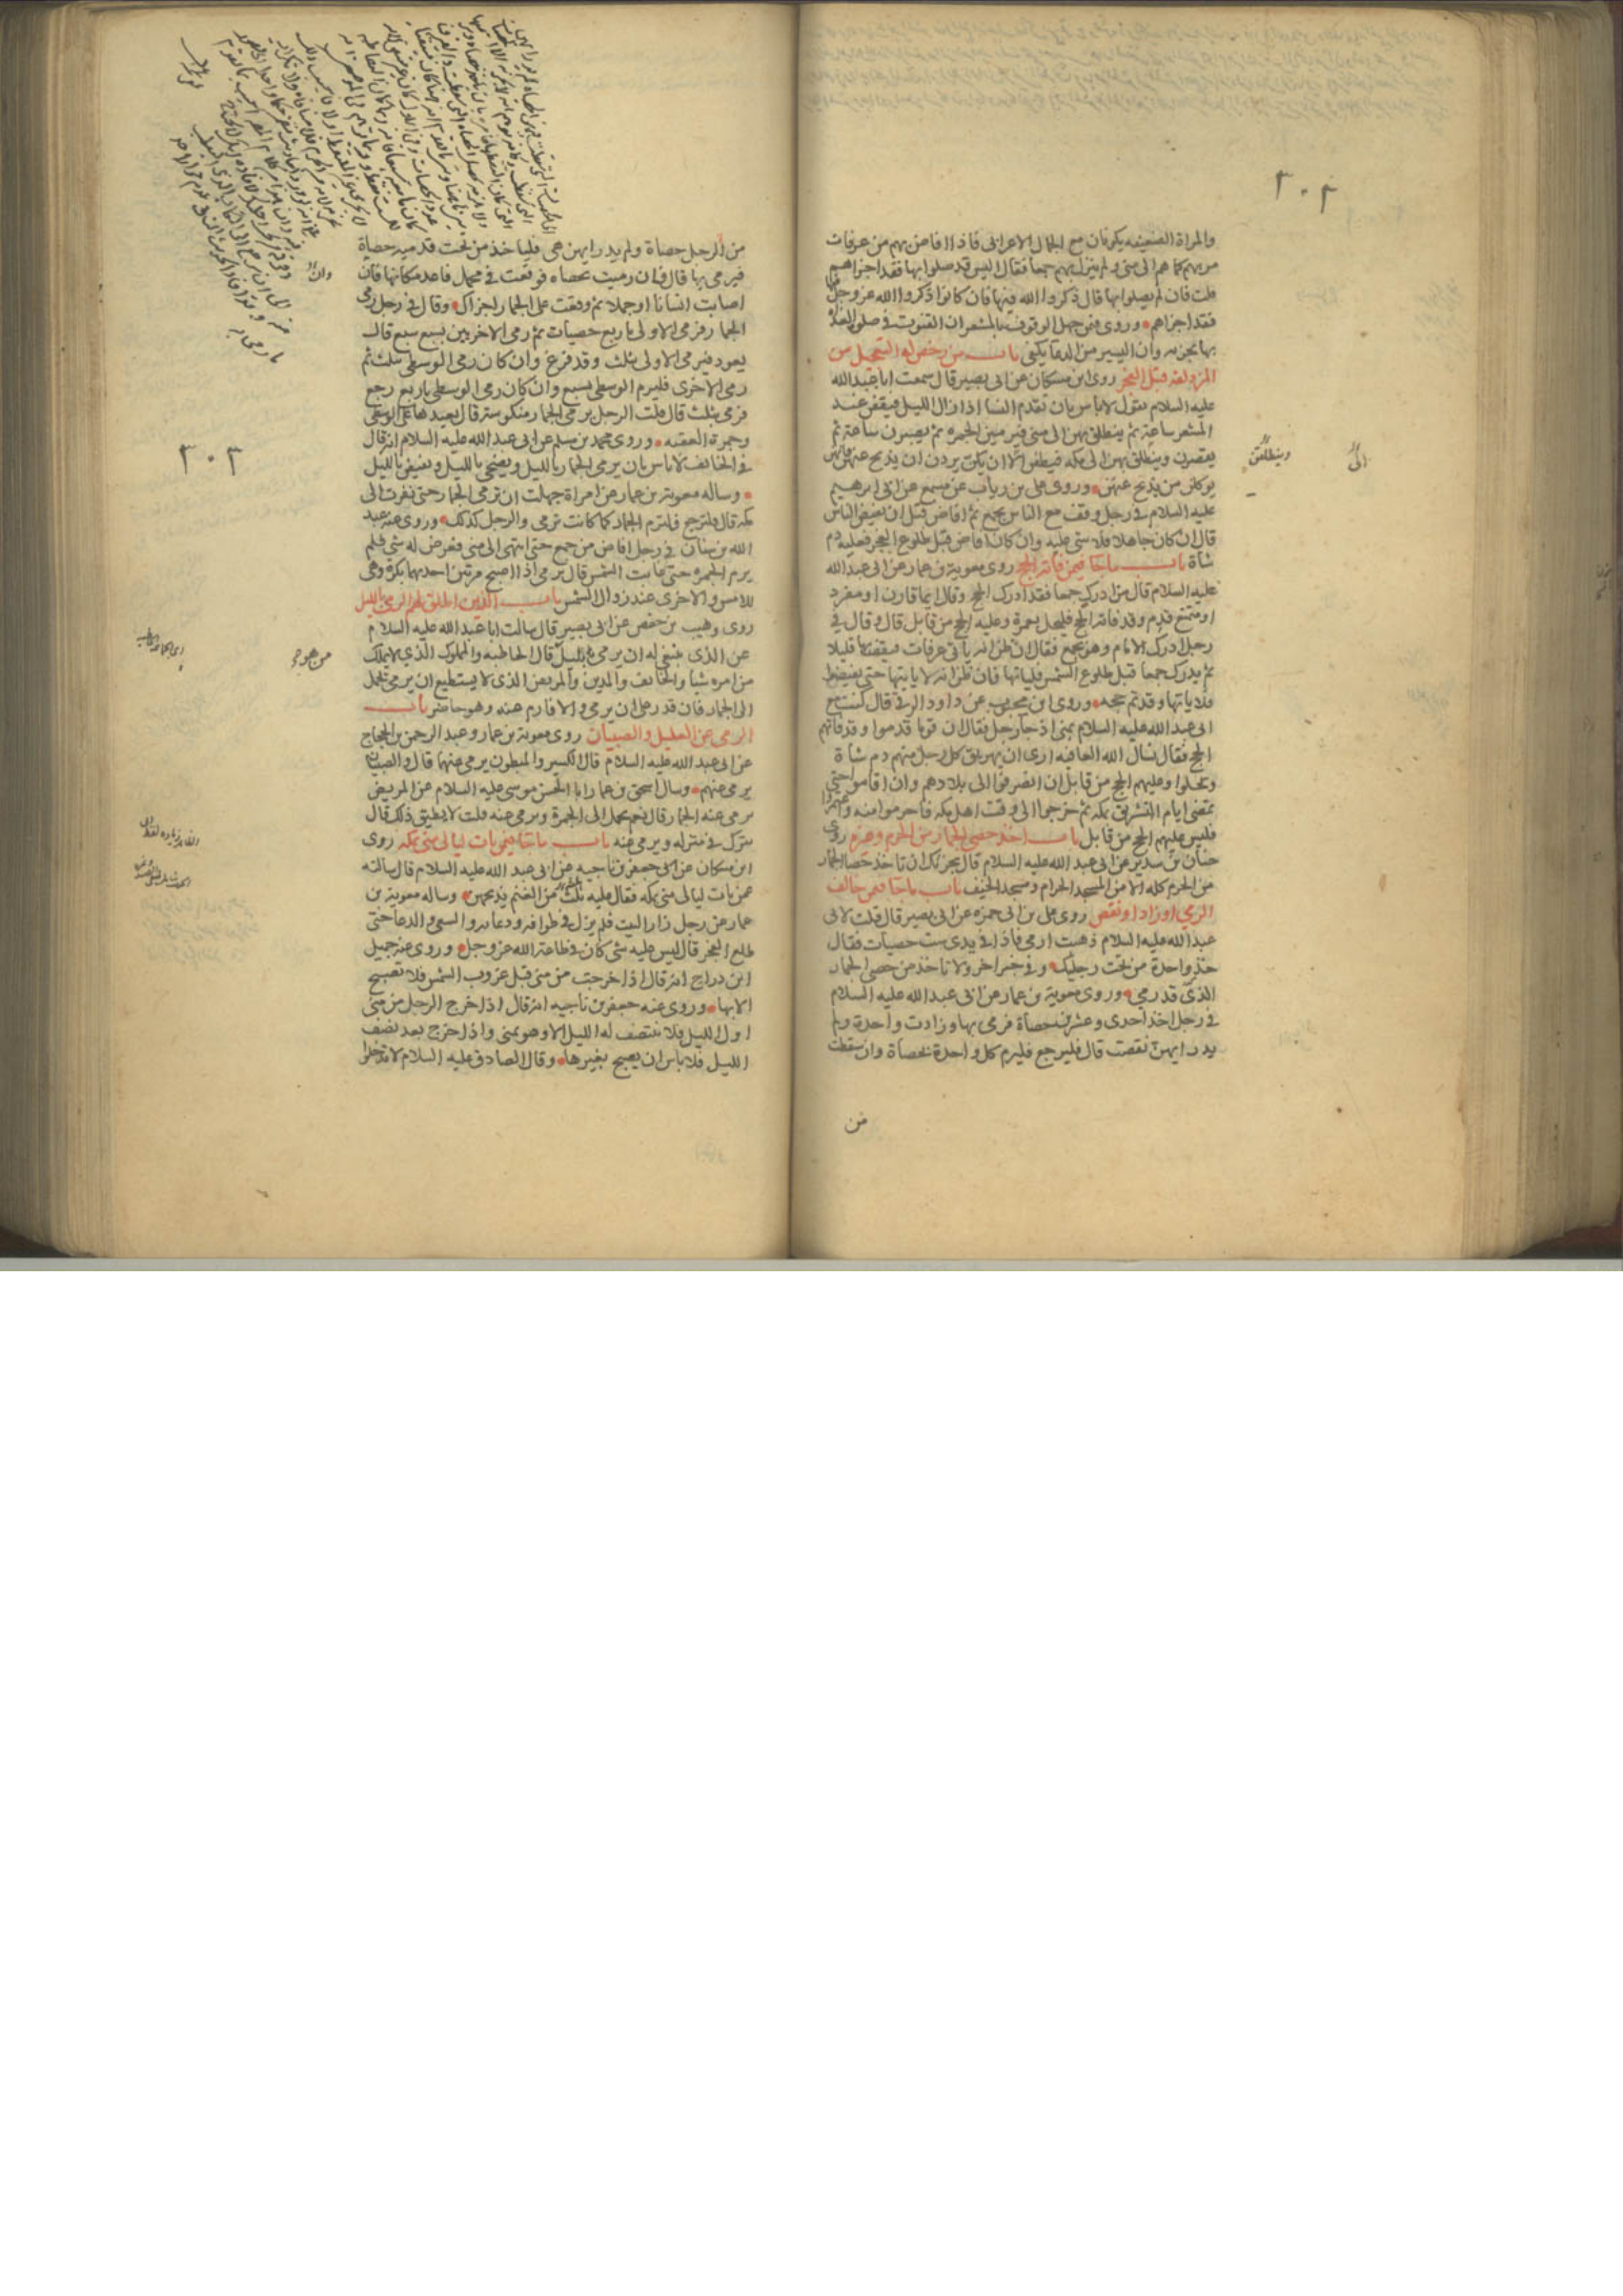 ٣٠٢
والمراة الضعيفه يكونان مع الجمال الاعرابى فاذا افاض بهم من عرفات
مر بهم كما هم الى منى ولم ينزل بهم جمعا فقال اليس قد صلوا بها فقد اجزاهم
قلت فان لم يصلوا بها قال ذكروا الله فيها فان كانوا ذكروا الله عز وجل
فقد اجزاهم وروى فيمن جهل الوقوف بالمشعر ان القنوت فى صلوة الغداة
بها يجزيه وان اليسير من الدعا يكفى باب من رخص له التعجيل من
المزدلفه قبل الفجر روى ابن مسكان عن ابى بصير قال سمعت ابا عبد الله
عليه السلام يقول لا باس بان تقدم النسا اذا زال الليل فيقفن عند
المشعر ساعة ثم ينطلق بهن الى منى فيرمين الجمره ثم يصبرن ساعة ثم
يقصرن وينطلق بهن الى مكه فيطفن الا ان يكن يردن ان يذبح عنهن فانهن
يوكلن من يذبح عنهن وروى على بن رياب عن مسمع عن ابى ابرهيم
عليه السلام فى رجل وقف مع الناس بجمع ثم افاض قبل ان يفيض الناس
قال ان كان جاهلا فلا شى عليه وان كان افاض قبل طلوع الفجر فعليه دم
شاة باب ما جا فيمن فاته الحج روى معوية بن عمار عن ابى عبد الله
عليه السلام قال من ادرك جمعا فقد ادرك الحج وقال ايما قارن او مفرد
او متمتع قدم وقد فاته الحج فليحل بعمرة وعليه الحج من قابل قال وقال فى
رجل ادرك الامام وهو بجمع فقال ان ظن انه ياتى عرفات فيقف بها قليلا
ثم يدرك جمعا قبل طلوع الشمس فلياتها فان ظن انه لا ياتيها حتى يفيضوا
فلا ياتها وقد تم حجه وروى ابن محبوب عن داود الرقى قال كنت مع
ابى عبد الله عليه السلام بمنى اذ جا رجل فقال ان قوما قدموا وقد فاتهم
الحج فقال نسال الله العافيه ارى ان يهريق كل رجل منهم دم شاة
ويحلوا وعليهم الحج من قابل ان انصرفوا الى بلادهم وان اقاموا حتى
تمضى ايام التشريق بمكه ثم خرجوا الى وقت اهل مكه فاحرموا منه واعتمروا
فليس عليهم الحج من قابل باب اخذ حصى الجمار من الحرم وغيره روى
حنان بن سدير عن ابى عبد الله عليه السلام قال يجزيك ان تاخذ حصا الجمار
من الحرم كله الا من المسجد الحرام ومسجد الخيف باب ما جا فيمن خالف
الرمي او زاد او نقص روى على بن ابى حمزه عن ابى بصير قال قلت لابى
عبد الله عليه السلام ذهبت ارمى فاذا فى يدى ست حصيات فقال
خذ واحدة من تحت رجليك وفى خبر اخر ولا تاخذ من حصى الجمار
الذى قد رمي وروى معوية بن عمار عن ابى عبد الله عليه السلام
فى رجل اخذ احدى وعشرين حصاة فرمى بها وزادت واحدة ولم
يدر ايهن نقصت قال فليرجع فليرم كل واحدة بحصاة وان سقطت
من
وينطلقن
الى
٣٠٣
من الرجل حصاة ولم يدر ايهن هى فلياخذ من تحت قدميه حصاة
فيرمى بها قال فان رميت بحصاه فوقعت فى محمل فاعد مكانها فان
اصابت انسانا او جملا ثم وقعت على الجمار اجزاك وقال فى رجل رمى
الجمار فرمى الاولى باربع حصيات ثم رمى الاخريين بسبع سبع قال
يعود فيرمى الاولى بثلث وقد فرغ وان كان رمى الوسطى بثلث ثم
رمى الاخرى فليرم الوسطى بسبع وان كان رمى الوسطى باربع رجع
فرمى بثلث قال قلت الرجل يرمى الجمار منكوسة قال يعيدها على الوسطى
وجمرة العقبه وروى محمد بن مسلم عن ابى عبد الله عليه السلام انه قال
فى الخائف لا باس بان يرمى الجمار بالليل ويضحى بالليل ويفيض بالليل
وساله معوية بن عمار عن امراة جهلت ان ترمى الجمار حتى نفرت الى
مكه قال فلترجع فلترم الجمار كما كانت ترمى والرجل كذلك وروى عنه عبد
الله بن سنان فى رجل افاض من جمع حتى انتهى الى منى فعرض له شى فلم
يرم الجمره حتى غابت الشمس قال يرمى اذا اصبح مرتين احدهما بكرة وهى
للامس والاخرى عند زوال الشمس باب الذين اطلق لهم الرمى بالليل
روى وهيب بن حفص عن ابى بصير قال سالت ابا عبد الله عليه السلام
عن الذى ينبغى له ان يرمى بليل من هو قال الحاطبه والمملوك الذى لا يملك
من امره شيا والخائف والمدين والمريض الذى لا يستطيع ان يرمى يحمل
الى الجمار فان قدر على ان يرمى والا فارم عنه وهو حاضر باب
الرمى عن العليل والصبيان روى معوية بن عمار وعبد الرحمن بن الحجاج
عن ابى عبد الله عليه السلام قال الكسير والمبطون يرمى عنهما قال والصبيان
يرمى عنهم وسال اسحق بن عمار ابا الحسن موسى عليه السلام عن المريض
يرمى عنه الجمار قال نعم يحمل الى الجمرة ويرمى عنه قلت لا يطيق ذلك قال
يترك فى منزله ويرمى عنه باب ما جا فيمن بات ليالى منى بمكه روى
ابن مسكان عن جعفر بن ناجيه عن ابى عبد الله عليه السلام قال سالته
عمن بات ليالى منى بمكه فقال عليه ثلثة من الغنم يذبحهن وساله معوية بن
عمار عن رجل زار البيت فلم يزل فى طوافه ودعائه والسعى والدعا حتى
طلع الفجر قال ليس عليه شى كان فى طاعة الله عز وجل وروى عنه جميل
ابن دراج انه قال اذا خرجت من منى قبل غروب الشمس فلا تصبح
الا بها وروى عنه جعفر بن ناجيه انه قال اذا خرج الرجل من منى
اول الليل فلا ينتصف له الليل الا وهو بمنى واذا خرج بعد نصف
الليل فلا باس ان يصبح بغيرها وقال الصادق عليه السلام لا تدخلوا